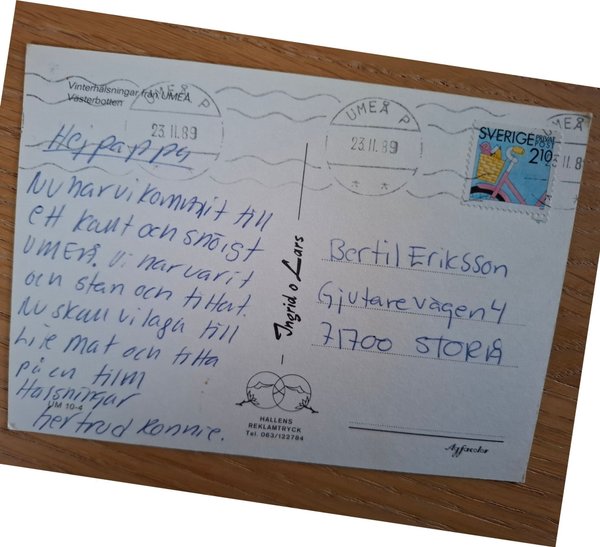 Vinterhälsningar från UMEÅ,
Västerbotten
UMEÅ P
23.11.89
UMEÅ P
23.11.89
UMEÅ
23.11.89
SVERIGE PRIVAT
POST
2.10
Hej pappa
Nu har vi kommit till
ett kallt och snöigt
UMEÅ. Vi har varit
och stan och tittat.
Nu skall vi laga till
lite mat och titta
på en film
Hälsningar
Gertrud Konnie.
UM 10-4
Ingrid o Lars
HALLENS
REKLAMTRYCK
Tel. 063/122784
Bertil Eriksson
Gjutarevägen 4
71700 STORÅ
Agfacolor